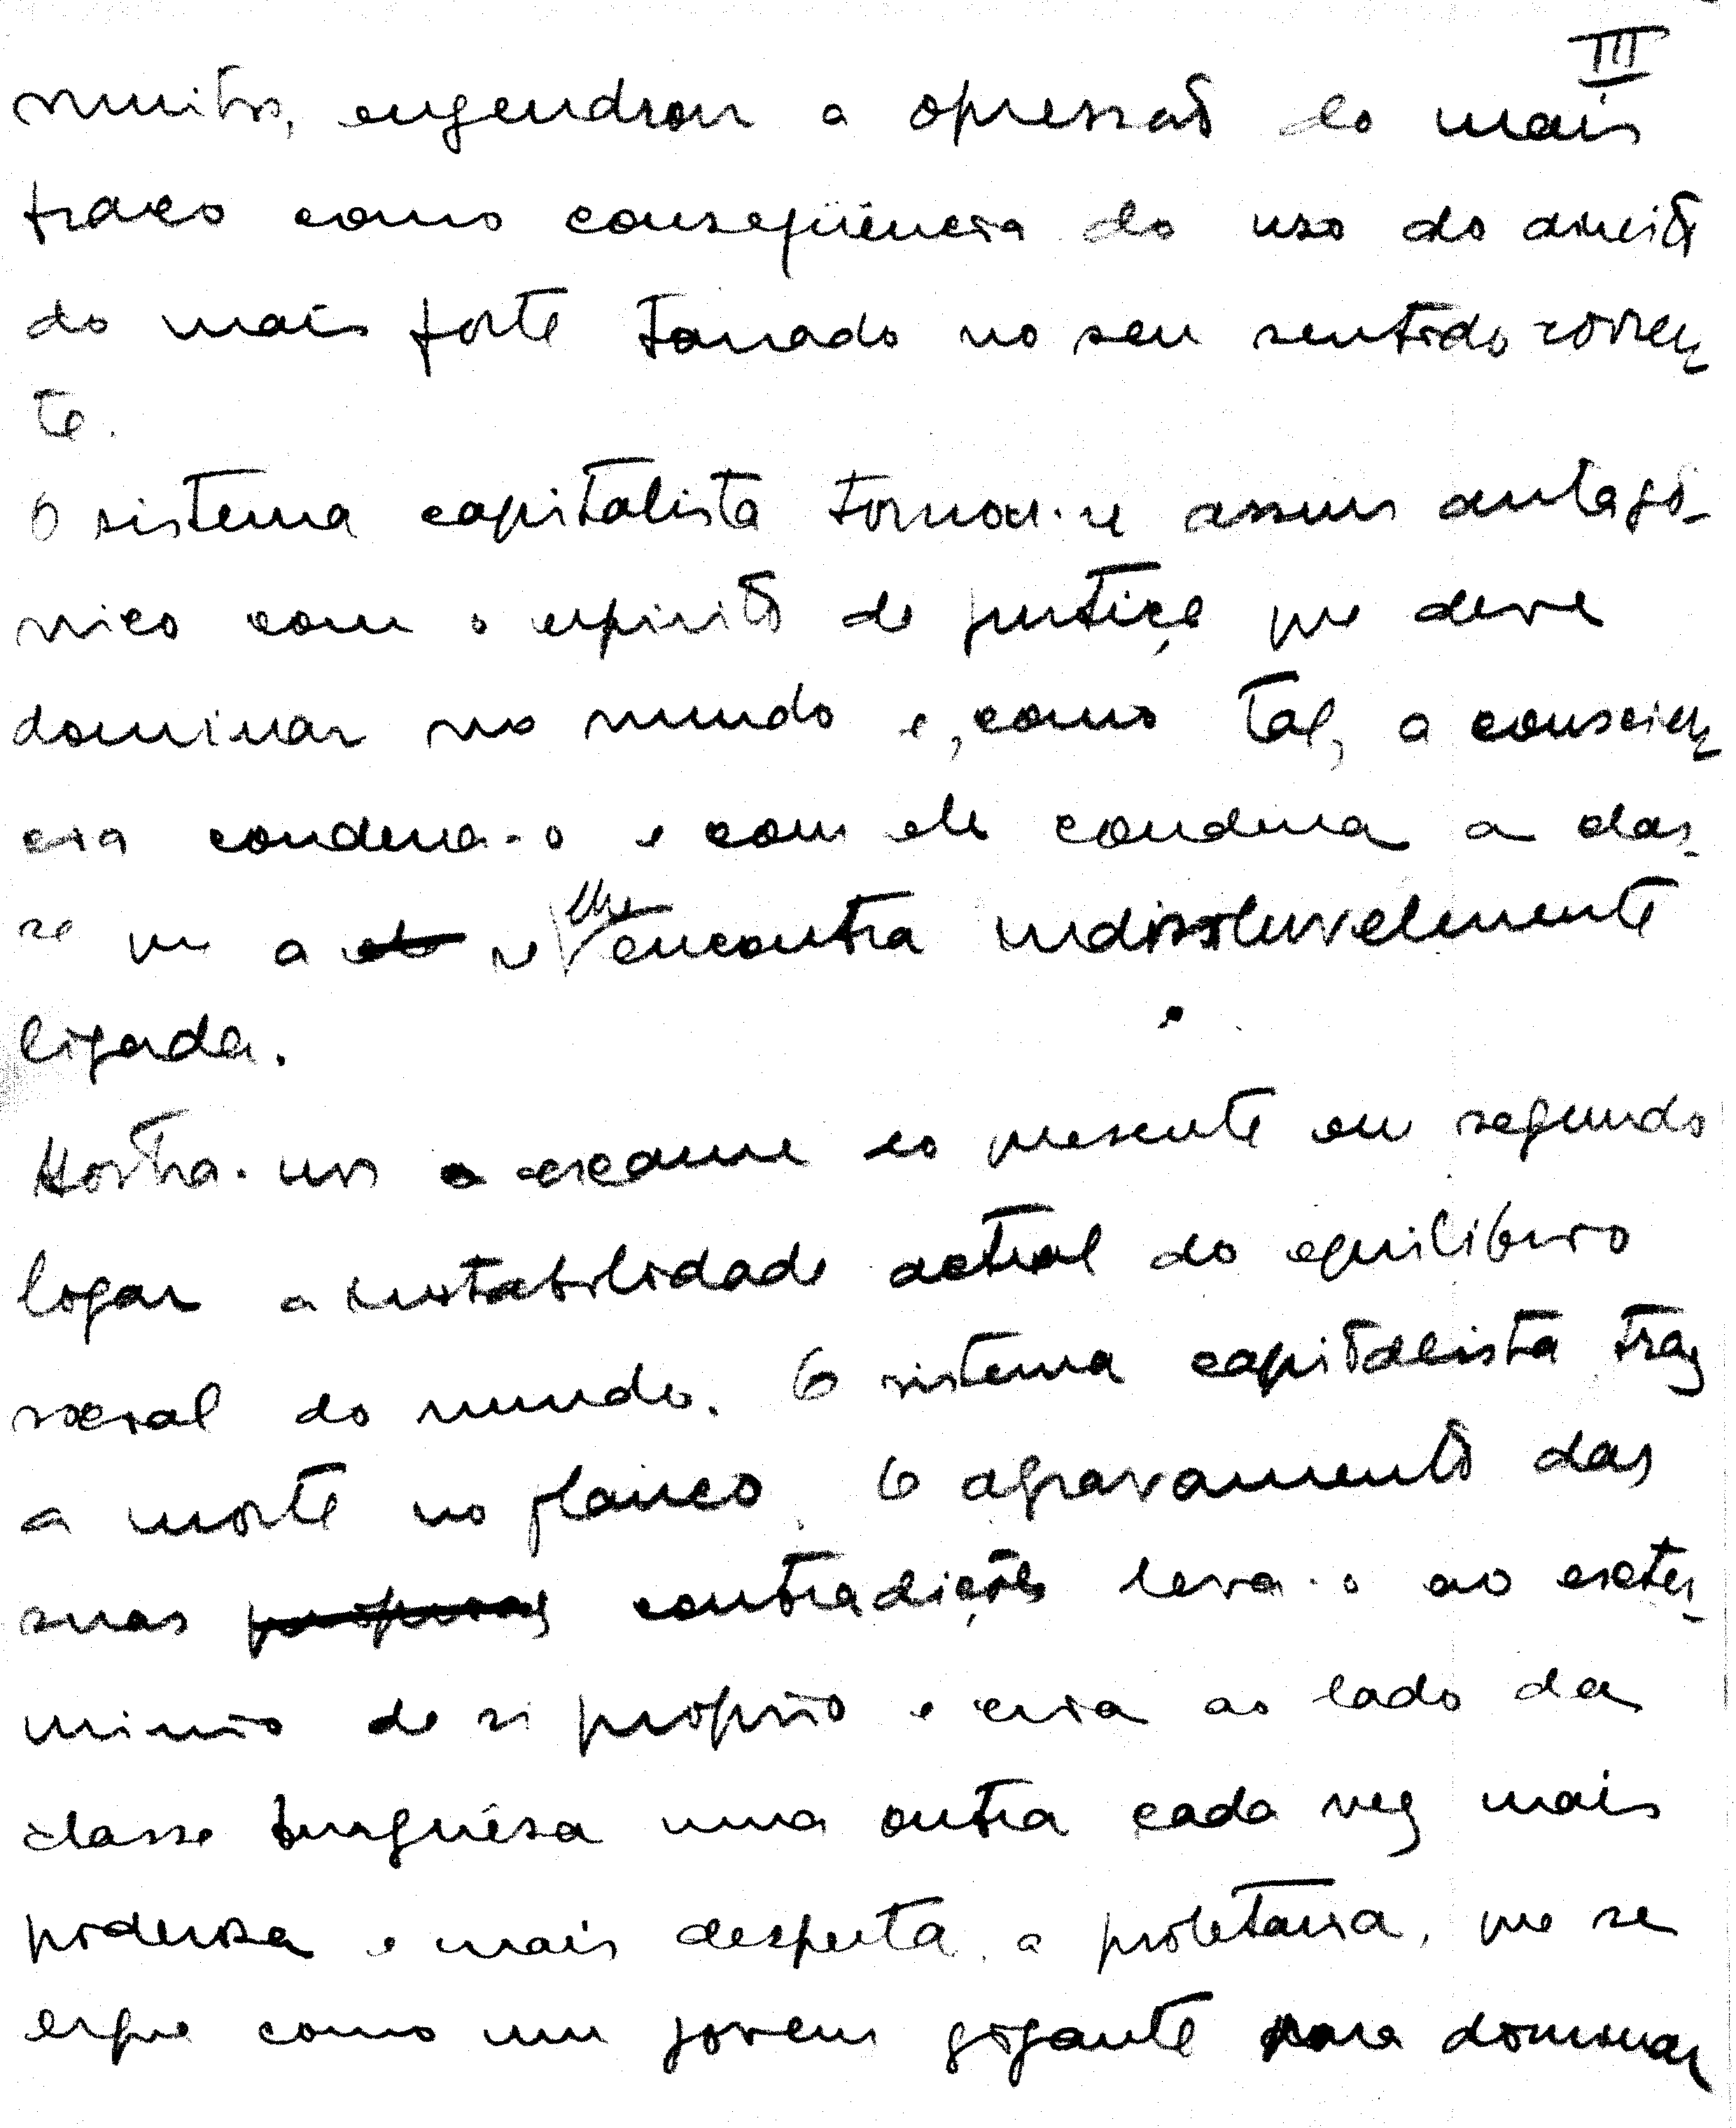 III
muitos, engendrou a opressão do mais
fraco como conseqüência do uso do direito
do mais forte tomado no seu sentido corren
te.
O sistema capitalista tornou-se assim antagó-
nico com o espírito de justiça que deve
dominar no mundo e, como tal, a conscien
cia condena-o e com ele condena a clas-
se que a ele se lhe encontra indissoluvelmente
ligada.
Mostra-nos o exame do presente em segundo
logar a instabilidade actual do equilíbrio
social do mundo. O sistema capitalista traz
a morte no flanco. O agravamento das
suas próprias contradições leva-o ao exter-
mínio de si próprio e cria ao lado da
classe burguêsa uma outra cada vez mais
poderosa e mais desperta, a proletária, que se
ergue como um jovem gigante para dominar